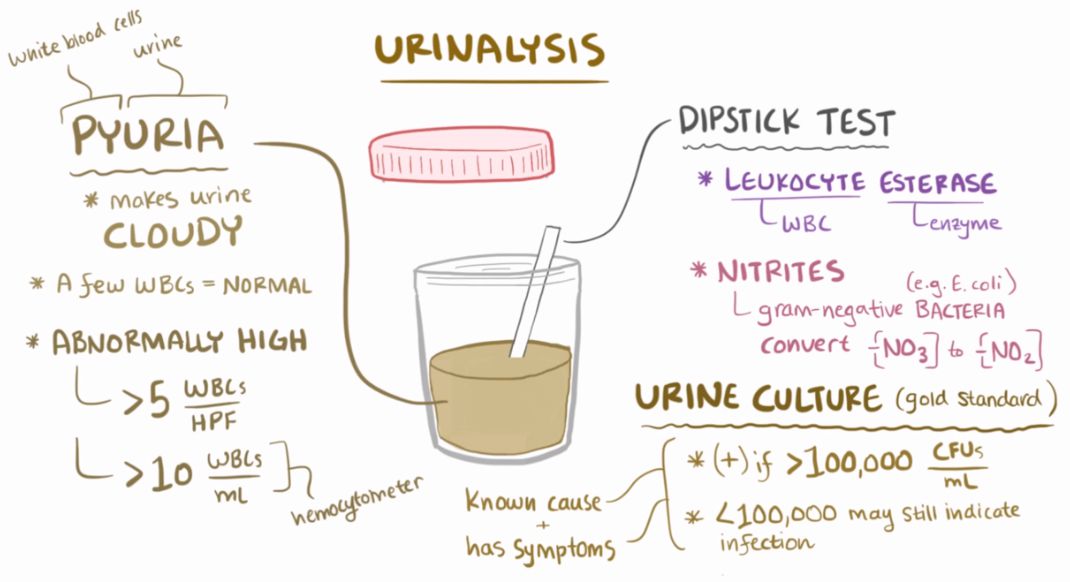 URINALYSIS
white blood cells
urine
PYURIA
* makes urine
CLOUDY
* A few WBCs = NORMAL
* ABNORMALLY HIGH
>5 WBCs
HPF
>10 WBCs
mL
hemocytometer
DIPSTICK TEST
* LEUKOCYTE ESTERASE
WBC
enzyme
* NITRITES
(e.g. E. coli)
gram-negative BACTERIA
convert [NO3] to [NO2]
URINE CULTURE (gold standard)
* (+) if >100,000 CFUs
mL
* <100,000 may still indicate
infection
Known cause
+
has symptoms